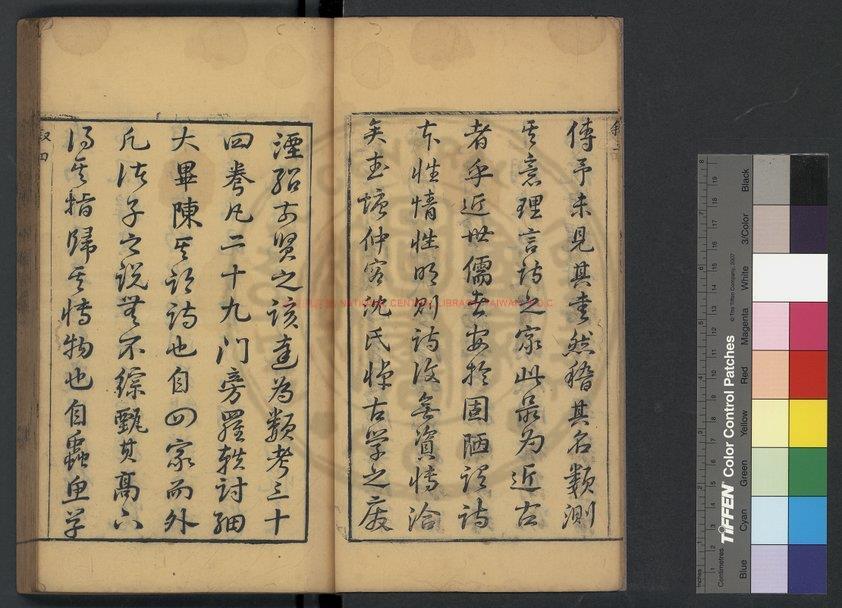 傳予未見其書然稽其名類測
其意理言詩之家此最為近古
者乎近世儒者安於固陋謂詩
本性情性明則詩無資博洽
矣武塘仲容沈氏悼古學之廢
湮紹前賢之該達為類考三十
四卷凡二十九門旁羅軼討細
大畢陳其談詩也自四家而外
凡諸子之說無不綜甄其
得其指歸其博物也自蟲魚草
敘四
NATIONAL CENTRAL LIBRARY, TAIWAN, R.O.C
TIFFEN Color Control Patches
© The Tiffen Company, 2007
Centimetres
Blue
Cyan
Green
Yellow
Red
Magenta
White
3/Color
Black